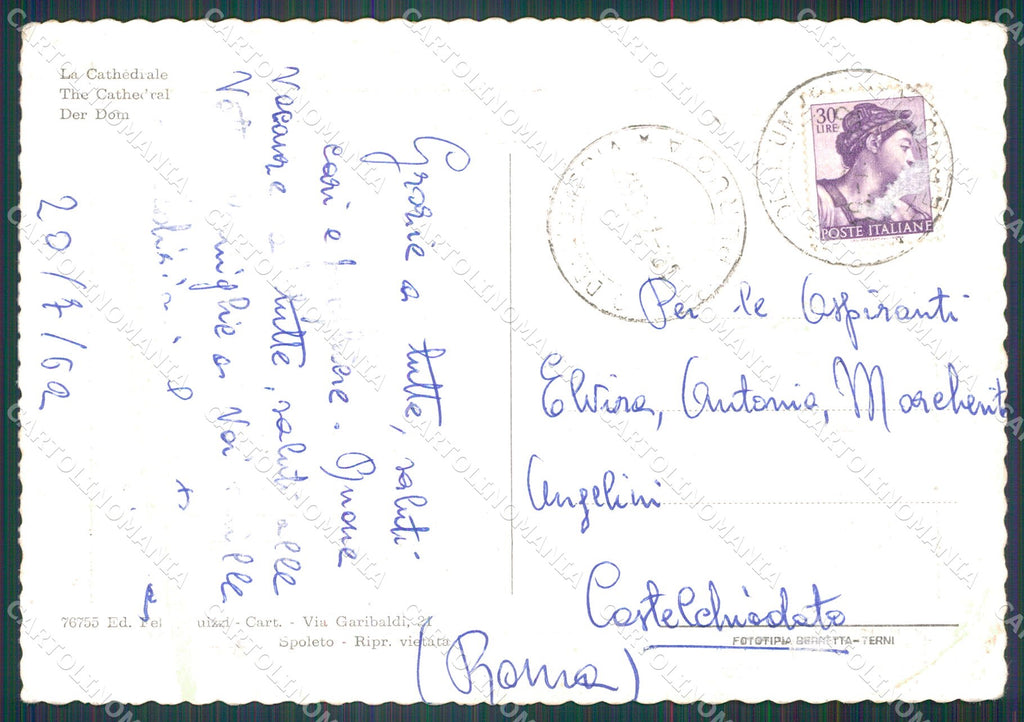 La Cathédrale
The Cathedral
Der Dom
30
LIRE
POSTE ITALIANE
Grazie a tutte, saluti
cari e Buone
Vacanze a tutte, saluti alle
famiglie a Voi mille
20/7/62
Per le Aspiranti
Elvira, Antonia, Margherita
Angelini
Castelchiodato
(Roma)
76755 Ed. - Cart. - Via Garibaldi, 21
Spoleto - Ripr. vietata
FOTOTIPIA BERRETTA-TERNI
CARTOLINOMANIA